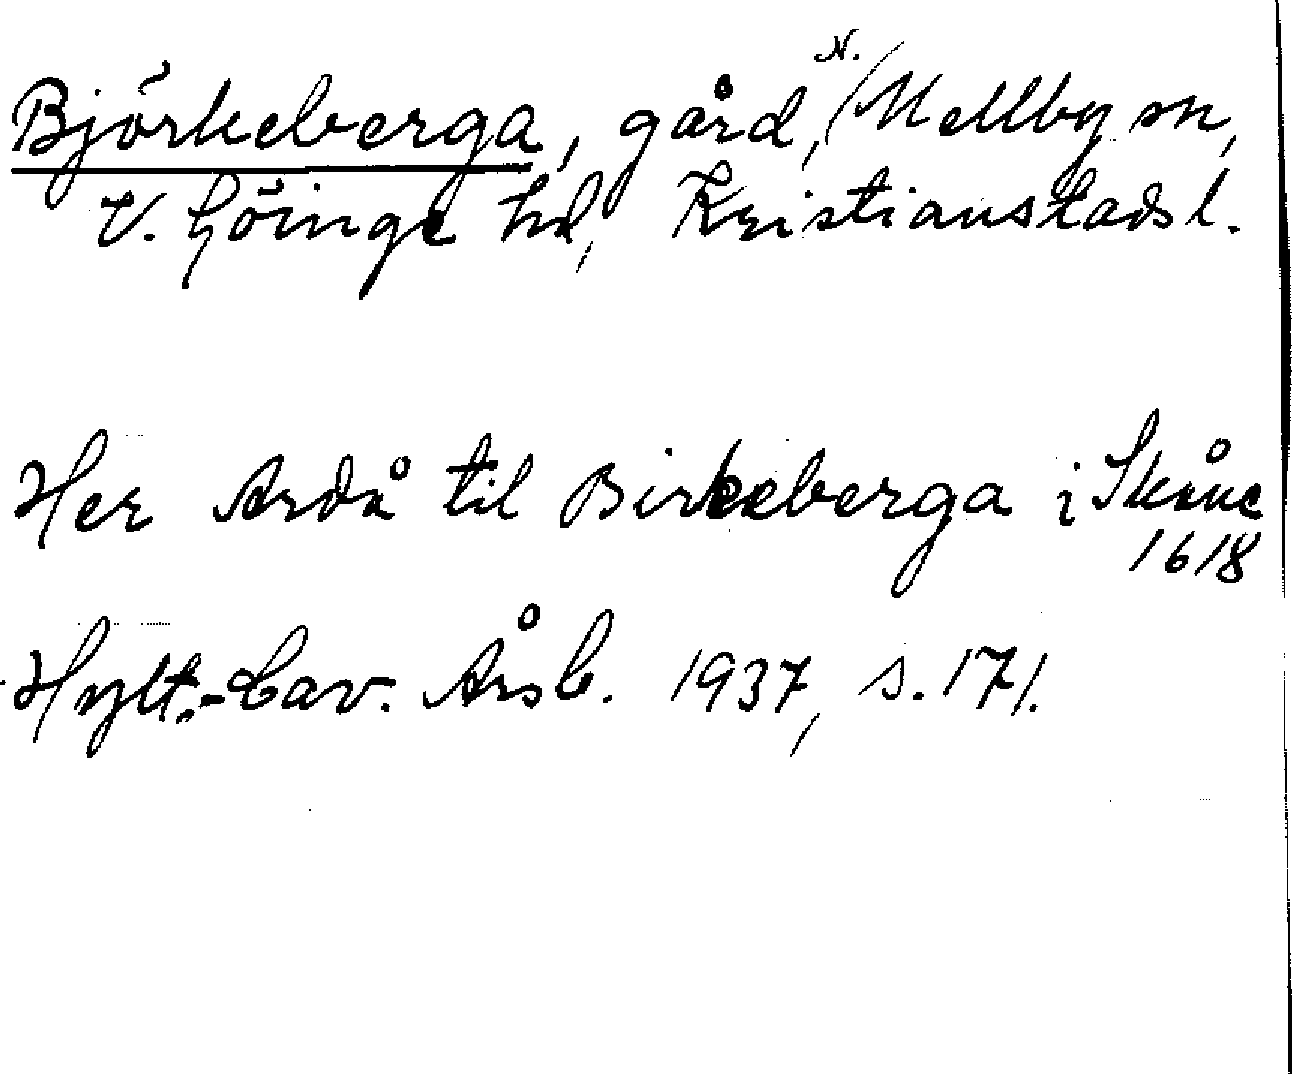 Björkeberga, gård, N. Mellby sn,
V. Göinge hd, Kristianstads l.
Her Ardå til Birkeberga i Skåne
1618
Hylt.-Cav. Årsb. 1937, s. 171.